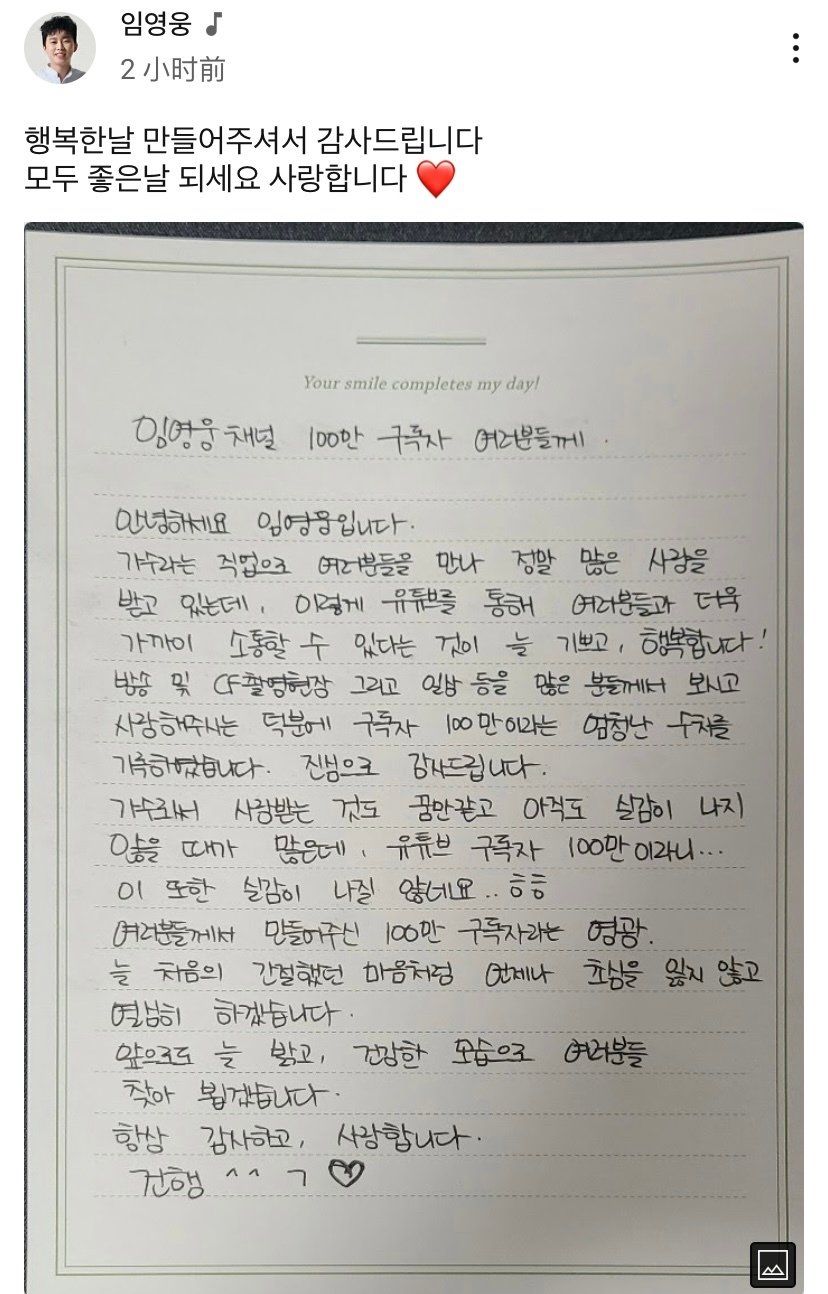 임영웅 ♪
2 小时前
행복한날 만들어주셔서 감사드립니다
모두 좋은날 되세요 사랑합니다 ❤️
Your smile completes my day!
임영웅 채널 100만 구독자 여러분들께.
안녕하세요 임영웅입니다.
가수라는 직업으로 여러분들을 만나 정말 많은 사랑을
받고 있는데, 이렇게 유튜브를 통해 여러분들과 더욱
가까이 소통할 수 있다는 것이 늘 기쁘고, 행복합니다!
방송 및 CF촬영현장 그리고 일상 등을 많은 분들께서 보시고
사랑해주시는 덕분에 구독자 100만이라는 엄청난 수치를
기록하였습니다. 진심으로 감사드립니다.
가수로써 사랑받는 것도 꿈만같고 아직도 실감이 나지
않을 때가 많은데, 유튜브 구독자 100만이라니...
이 또한 실감이 나질 않네요.. ㅎㅎ
여러분들께서 만들어주신 100만 구독자라는 영광.
늘 처음의 간절했던 마음처럼 언제나 초심을 잃지 않고
열심히 하겠습니다.
앞으로도 늘 밝고, 건강한 모습으로 여러분들
찾아 뵙겠습니다.
항상 감사하고, 사랑합니다.
건행 ^^ ㄱ ♡